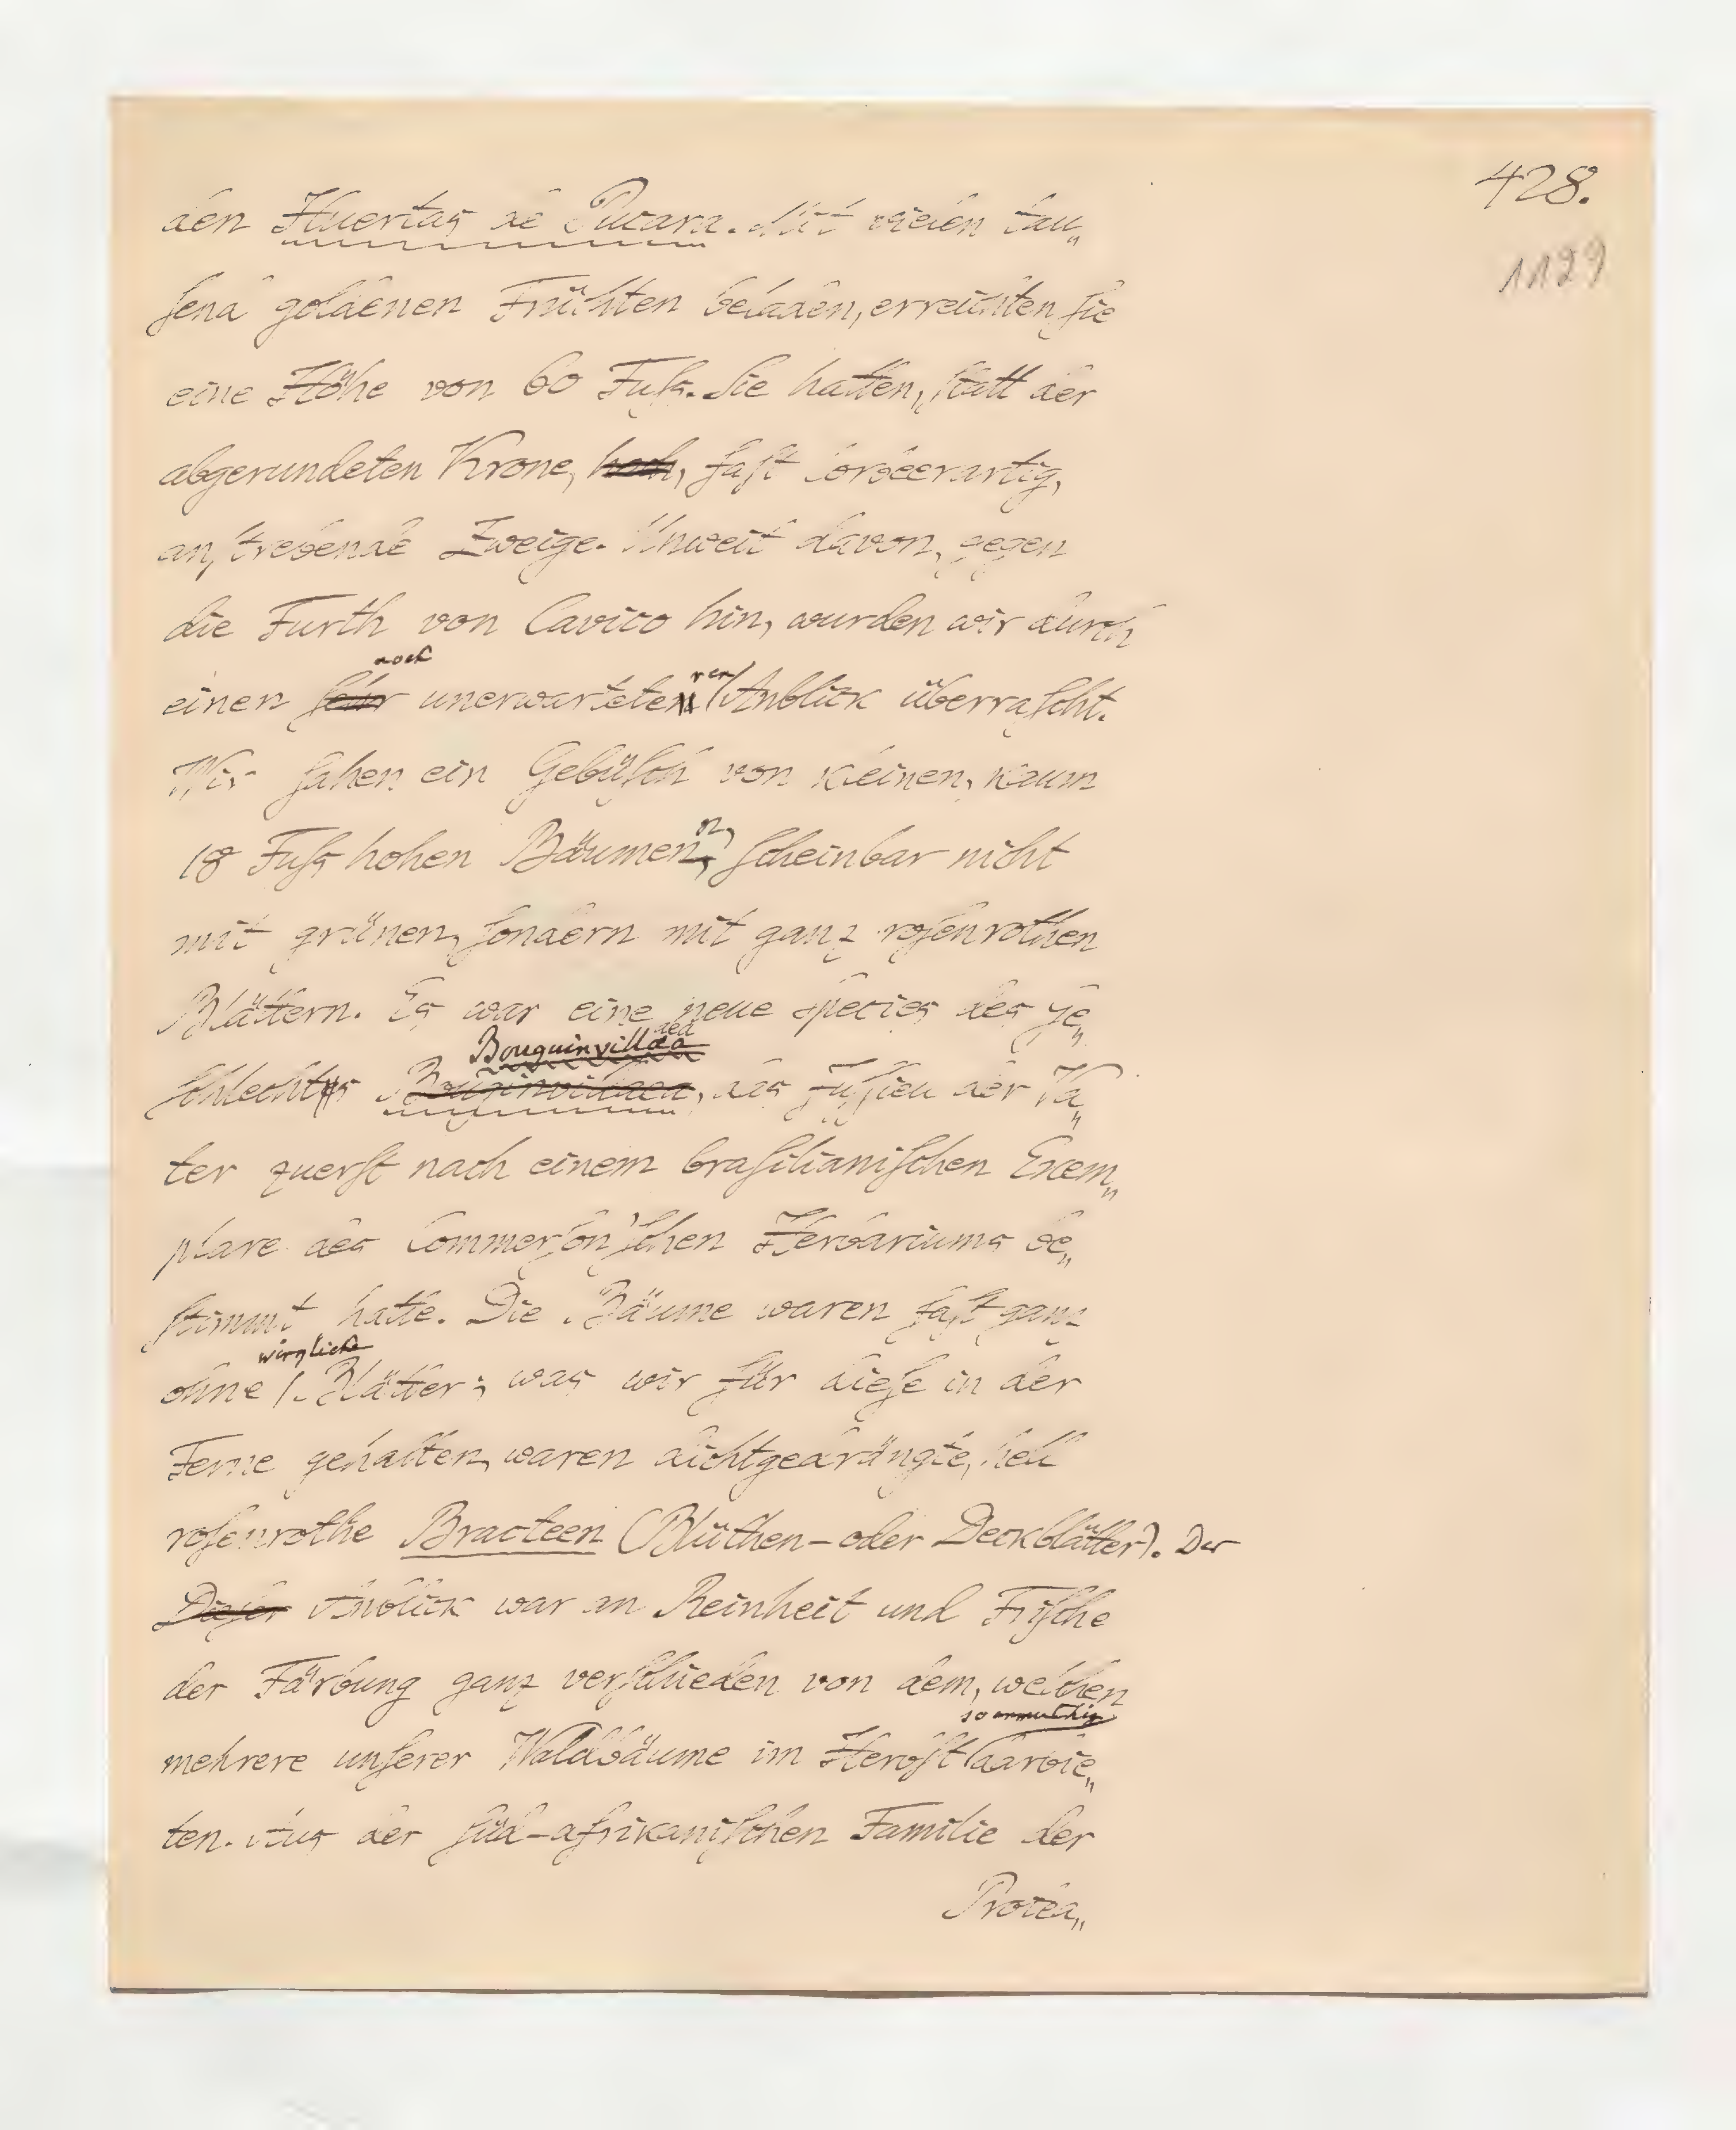 428.
1129
den Huertas de Pucara. Mit vielen tau„
ſend goldenen Früchten beladen, erreichten ſie
eine Höhe von 60 Fuſs. Sie hatten, ſtatt der
abgerundeten Krone, hoch, faſt lorbeerartig,
anſtrebende Zweige. Unweit davon, gegen
die Furth von Cavico hin, wurden wir durch
noch
ren
einen ſehr unerwarteten Anblick überraſcht.
Wir ſahen ein Gebüſch von kleinen, kaum
18 Fuſs hohen Bäumen, ſcheinbar nicht
mit grünen, ſondern mit ganz roſenrothen
Blättern. Es war eine neue Species des Ge„
Bouguinvillaea
ſchlechts Bouginvillaea, das Juſſieu der Va„
ter zuerſt nach einem braſilianiſchen Exem„
plare des Commerſon'ſchen Herbariums be„
ſtimmt hatte. Die Bäume waren faſt ganz
wirgliche
ohne Blätter; was wir für dieſe in der
Ferne gehalten, waren dichtgedrängte, hell
roſenrothe Bracteen (Blüthen- oder Deckblätter). Der
Dieſer Anblick war an Reinheit und Friſche
der Färbung ganz verſchieden von dem, welchen
so anmuthig
mehrere unſerer Waldbäume im Herbſt darbie„
ten. Aus der ſüd-afrikaniſchen Familie der
Protea„